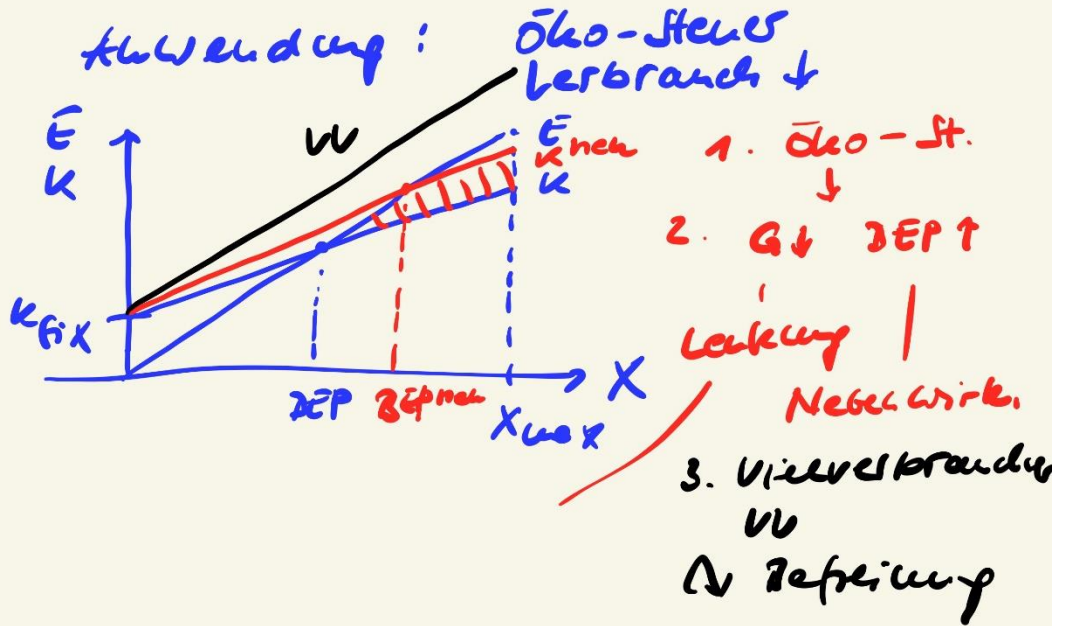 Anwendung: Öko-Steuer
Verbrauch ↓
E
K
VV
E
K neu
K
K fix
BEP
BEP neu
X max
X
1. Öko-St.
↓
2. G↓ BEP↑
Lenkung
Nebenwirk.
3. Vielverbraucher
VV
Befreiung